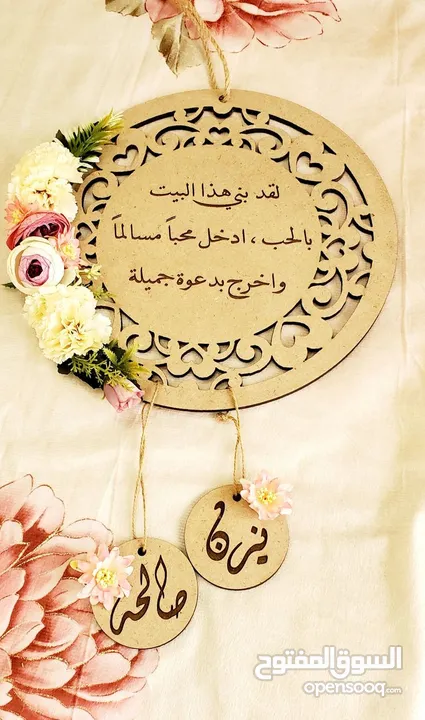 لقد بني هذا البيت
بالحب ، ادخل محباً مسالماً
واخرج بدعوة جميلة
يزن
صالحه
السوق المفتوح
opensooq.com